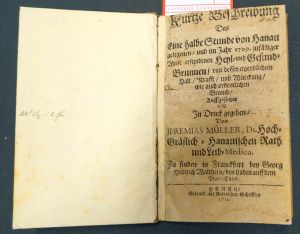 Kurtze Beschreibung
Des
Eine halbe Stunde von Hanau
gelegenen / und im Jahr 1709.
erfundenen Heyl- und Gesund-
Brunnen / von dessen eigentlichem
Halt / Krafft / und Würckung /
wie auch ordentlichen
Brauch /
Auffgesetzet
und
In Druck gegeben /
Von
JEREMIAS MÜLLER, Dr. Hoch-
Gräflich-Hanauischen Rath
und Leib-Medico.
Zu finden in Franckfurt bey Georg
Heinrich Walthern / den Laden auff dem
Pfarr-Eisen.
HANAU /
Gedruckt mit